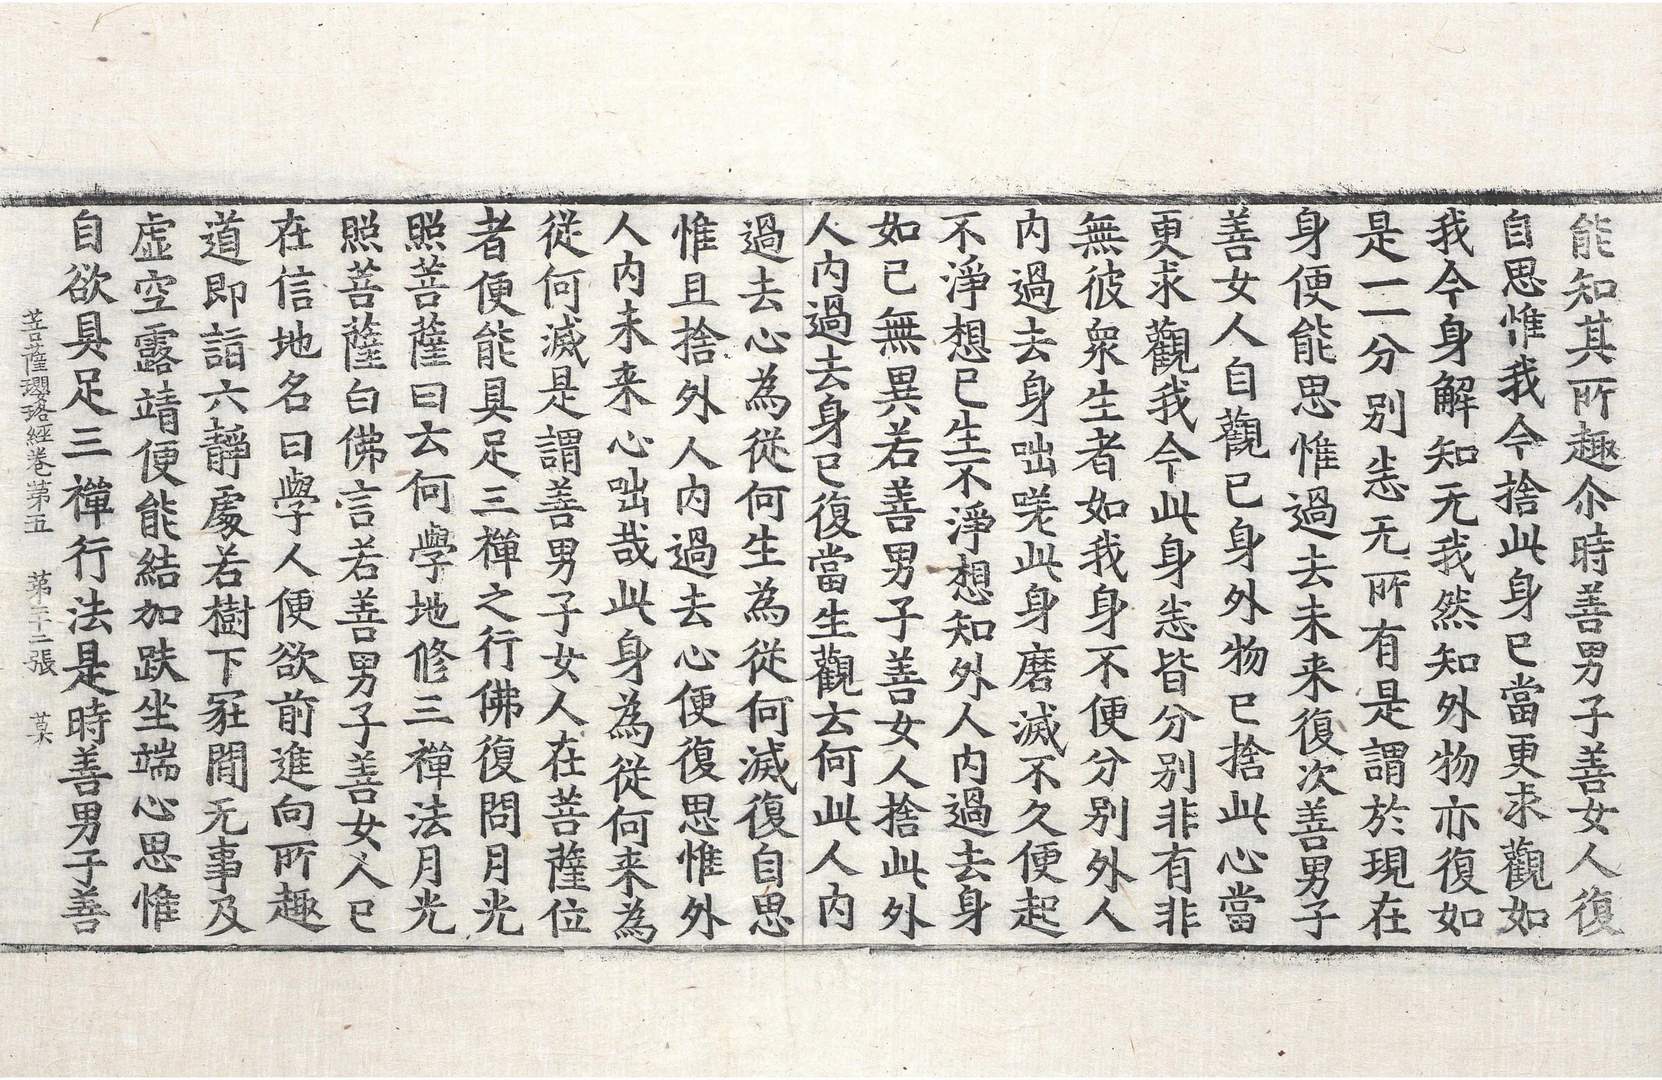 能知其所趣尒時善男子善女人復
自思惟我今捨此身已當更求觀如
我今身解知无我然知外物亦復如
是一一分別悉无所有是謂於現在
身便能思惟過去未来復次善男子
善女人自觀已身外物已捨此心當
更求觀我今此身悉皆分別非有非
無彼衆生者如我身不便分別外人
内過去身咄嗟此身磨滅不久便起
不淨想已生不淨想知外人内過去身
如已無異若善男子善女人捨此外
人内過去身已復當生觀云何此人内
過去心為從何生為從何滅復自思
惟且捨外人内過去心便復思惟外
人内未来心咄哉此身為從何来為
從何滅是謂善男子女人在菩薩位
者便能具足三禪之行佛復問月光
照菩薩曰云何學地修三禪法月光
照菩薩白佛言若善男子善女人已
在信地名曰學人便欲前進向所趣
道即詣六靜處若樹下冢間无事及
虛空露靖便能結加趺坐端心思惟
自欲具足三禪行法是時善男子善
菩薩瓔珞經卷第五 第二十二張